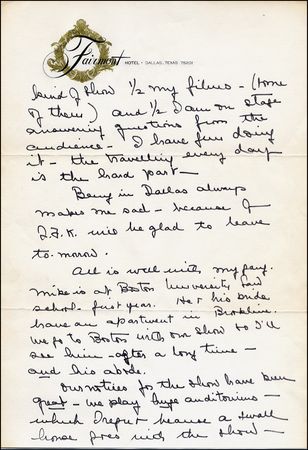 Fairmont
HOTEL · DALLAS, TEXAS 75201
kind of show 1/2 my films - (some
of them) and 1/2 I am on stage
answering questions from the
audience - I have fun doing
it - the travelling every day
is the hard part -
Being in Dallas always
makes me sad - because of
J.F.K. will be glad to leave
to-morrow.
All is well with my gang.
Mike is at Boston University Law
school - first year. He & his bride
have an apartment in Brookline.
we go to Boston with our show so I'll
see him - after a long time -
and his abode.
Our notices for the show have been
great - we play huge auditoriums -
which I regret because a small
house goes with the show -